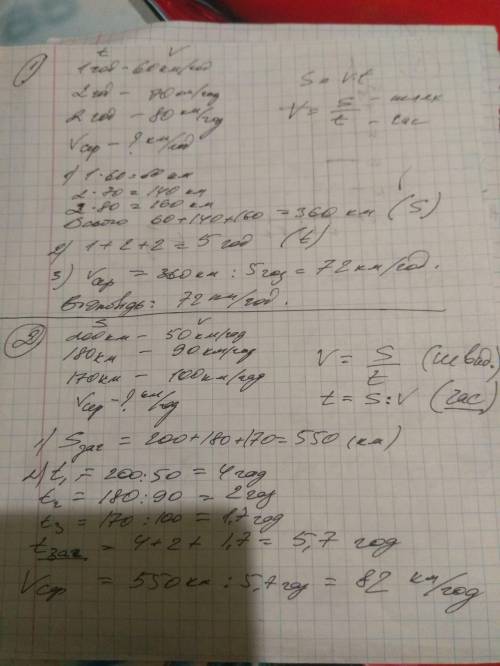 1
t V
1 год - 60 км/год
2 год - 70 км/год
2 год - 80 км/год
Vср - ? км/год
S = Vt
V = S/t - шлях - час
1) 1·60=60 км
2·70=140 км
2·80=160 км
Всього 60+140+160=360 км (S)
2) 1+2+2=5 год (t)
3) Vср = 360 км : 5 год = 72 км/год.
Відповідь: 72 км/год.
2
S V
200 км - 50 км/год
180 км - 90 км/год
170 км - 100 км/год
Vср - ? км/год
V = S/t (швид.)
t = S:V (час)
1) Sзаг = 200+180+170=550 (км)
2) t1 = 200:50 = 4 год
t2 = 180:90 = 2 год
t3 = 170:100 = 1,7 год
tзаг = 4+2+1,7 = 5,7 год
Vср = 550 км : 5,7 год = 82 км/год